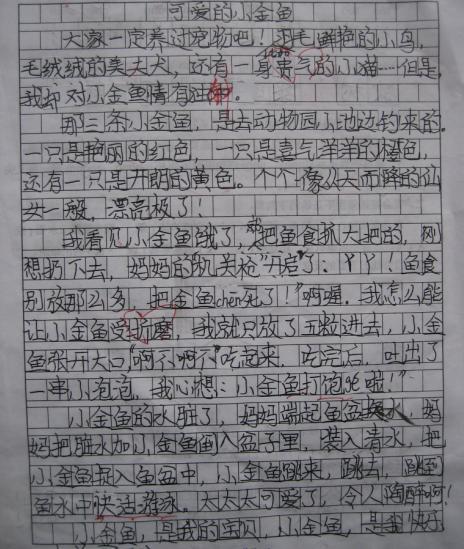 可爱的小金鱼
大家一定养过宠物吧！羽毛鲜艳的小鸟，
毛绒绒的美大犬，还有一身贵气的小猫……但是，
我却对小金鱼情有独钟。
那三条小金鱼，是去动物园小池边钓来的。
一只是艳丽的红色，一只是喜气洋洋的橙色，
还有一只是开朗的黄色。个个像从天而降的仙
女一般，漂亮极了！
我看见小金鱼饿了，把鱼食抓大把的，刚
想扔下去，妈妈的"机关枪"开启了：丫丫！鱼食
别放那么多，把金鱼chen死了！"啊喔，我怎么能
让小金鱼受折磨，我就只放了五粒进去，小金
鱼张开大口，"啊不啊不"吃起来，吃完后，吐出了
一串小泡泡，我心想：小金鱼打饱呃啦！"
小金鱼的水脏了，妈妈端起鱼盆换水，妈
妈把脏水加小金鱼倒入盆子里，装入清水，把
小金鱼捉入鱼盆中，小金鱼跳来，跳去，跳到
鱼水中快活游泳。太太太可爱了，令人陶醉啊！
小金鱼，是我的宝贝，小金鱼，是